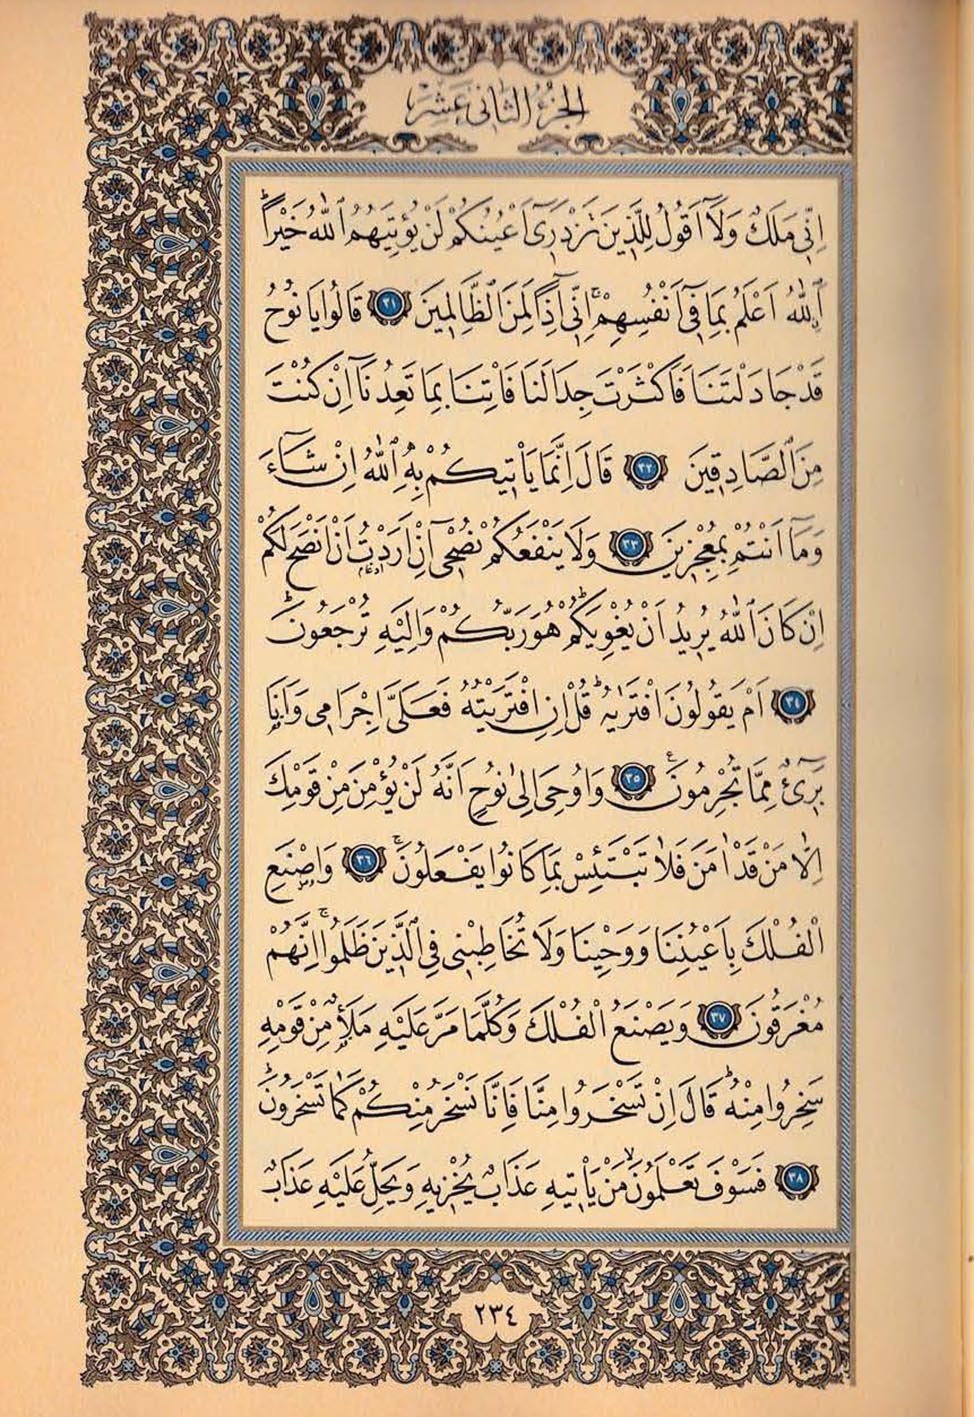 الجزء الثانى عشر
اِنّ۪ي مَلَكٌ وَلَٓا اَقُولُ لِلَّذ۪ينَ تَزْدَر۪ٓى اَعْيُنُكُمْ لَنْ يُؤْتِيَهُمُ ٱللّٰهُ خَيْراًۜ
ٱَللّٰهُ اَعْلَمُ بِمَا ف۪ٓى اَنْفُسِهِمْۚ اِنّ۪ٓى اِذاً لَمِنَ ٱلظَّالِم۪ينَ ٣١ قَالُوا يَا نُوحُ
قَدْ جَادَلْتَنَا فَاَكْثَرْتَ جِدَالَنَا فَاْتِنَا بِمَا تَعِدُنَٓا اِنْ كُنْتَ
مِنَ ٱلصَّادِق۪ينَ ٣٢ قَالَ اِنَّمَا يَاْت۪يكُمْ بِهِ ٱللّٰهُ اِنْ شَٓاءَ
وَمَٓا اَنْتُمْ بِمُعْجِز۪ينَ ٣٣ وَلَا يَنْفَعُكُمْ نُصْح۪ٓى اِنْ اَرَدْتُ اَنْ اَنْصَحَ لَكُمْ
اِنْ كَانَ ٱللّٰهُ يُر۪يدُ اَنْ يُغْوِيَكُمْۜ هُوَ رَبُّكُمْ وَاِلَيْهِ تُرْجَعُونَۜ
٣٤ اَمْ يَقُولُونَ افْتَرٰيهُۜ قُلْ اِنِ افْتَرَيْتُهُ فَعَلَىَّ اِجْرَام۪ى وَاَنَا۬
بَر۪ٓىءٌ مِمَّا تُجْرِمُونَ۟ ٣٥ وَاُوحِىَ اِلٰى نُوحٍ اَنَّهُ لَنْ يُؤْمِنَ مِنْ قَوْمِكَ
اِلَّا مَنْ قَدْ اٰمَنَ فَلَا تَبْتَئِسْ بِمَا كَانُوا يَفْعَلُونَۚ ٣٦ وَاصْنَعِ
الْفُلْكَ بِاَعْيُنِنَا وَوَحْيِنَا وَلَا تُخَاطِبْن۪ى فِى ٱلَّذ۪ينَ ظَلَمُواۚ اِنَّهُمْ
مُغْرَقُونَ ٣٧ وَيَصْنَعُ الْفُلْكَ وَكُلَّمَا مَرَّ عَلَيْهِ مَلَأٌ۬ مِنْ قَوْمِه۪
سَخِرُوا مِنْهُۜ قَالَ اِنْ تَسْخَرُوا مِنَّا فَاِنَّا نَسْخَرُ مِنْكُمْ كَمَا تَسْخَرُونَۜ
٣٨ فَسَوْفَ تَعْلَمُونَۙ مَنْ يَاْت۪يهِ عَذَابٌ يُخْز۪يهِ وَيَحِلُّ عَلَيْهِ عَذَابٌ
٢٣٤